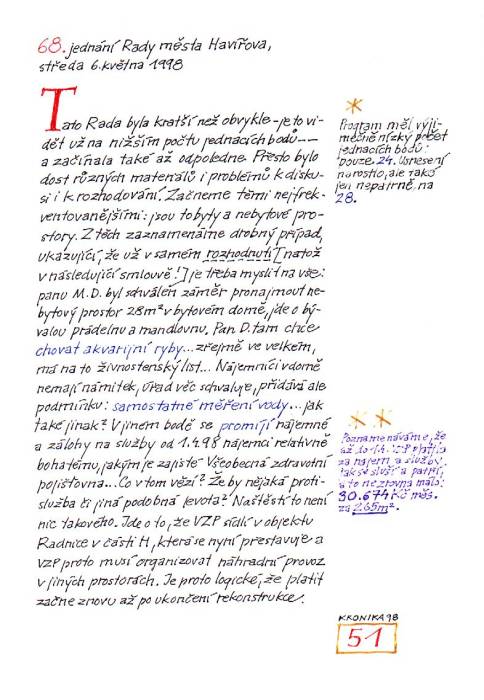 68. jednání Rady města Havířova,
středa 6. května 1998
Tato Rada byla kratší než obvykle - je to vi-
dět už na nižším počtu jednacích bodů —
a začínala také až odpoledne. Přesto bylo
dost různých materiálů i problémů k disku-
si i k rozhodování. Začneme těmi nejfrek-
ventovanějšími: jsou to byty a nebytové pro-
story. Z těch zaznamenáme drobný případ,
ukazující, že už v samém rozhodnutí [natož
v následující smlouvě!] je třeba myslit na vše:
panu M.D. byl schválen záměr pronajmout ne-
bytový prostor 28m² v bytovém domě, jde o bý-
valou prádelnu a mandlovnu. Pan D. tam chce
chovat akvarijní ryby... zřejmě ve velkém,
má na to živnostenský list... Nájemníci v domě
nemají námitek, úřad věc schvaluje, přidává ale
podmínku: samostatné měření vody... jak
také jinak? V jiném bodě se promíjí nájemné
a zálohy na služby od 1.4.98 nájemci relativně
bohatému, jakým je zajisté Všeobecná zdravotní
pojišťovna... Co v tom vězí? Že by nějaká proti-
služba či jiná podobná levota? Naštěstí to není
nic takového. Jde o to, že VZP sídlí v objektu
Radnice v části H, která se nyní přestavuje a
VZP proto musí organizovat náhradní provoz
v jiných prostorách. Je proto logické, že platit
začne znovu až po ukončení rekonstrukce.
*
Program měl výji-
mečně nízký počet
jednacích bodů:
pouze 24. Usnesení
narostlo, ale také
jen nepatrně, na
28.
**
Poznamenáváme, že
až do 1.4. VZP platila
za nájem a služby,
jak se sluší a patří,
a to nezrovna málo:
30.674 Kč měs.
za 265m².
KRONIKA 98
51